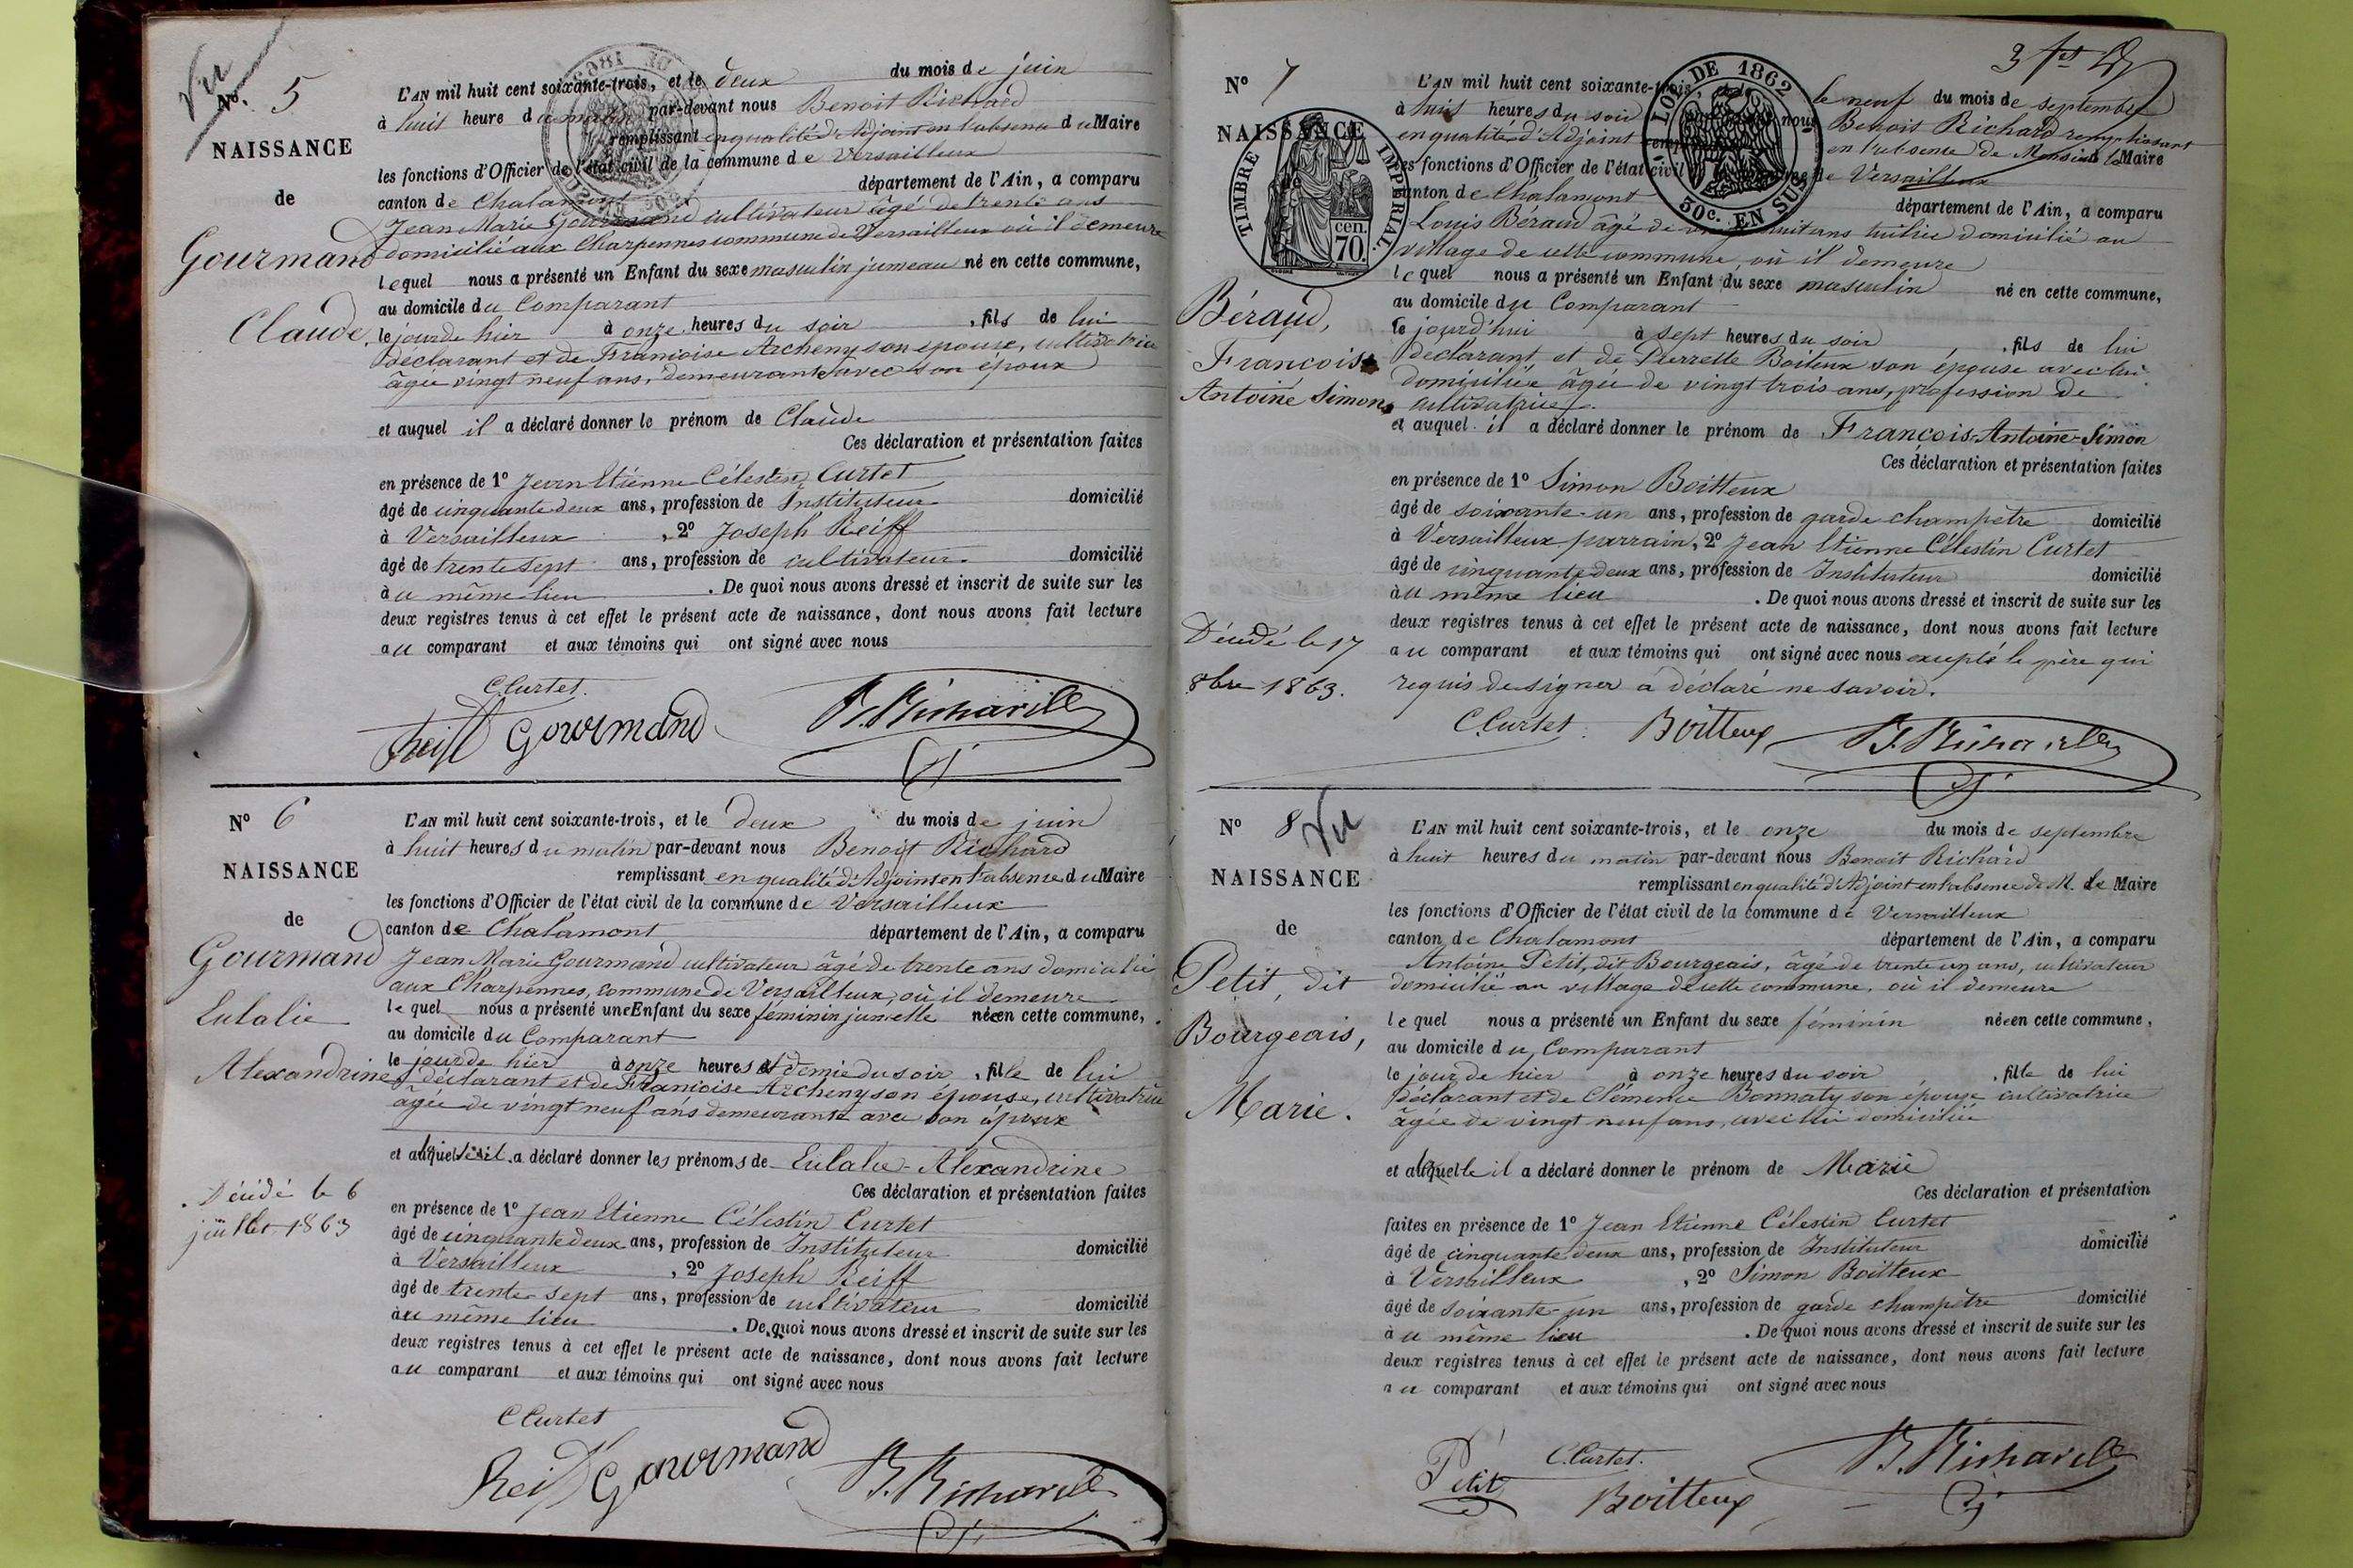 Vu
N° 5
NAISSANCE
de
Gourmand
Claude,
L'AN mil huit cent soixante-trois, et le deux du mois de juin
à huit heure du matin par-devant nous Benoit Richard
remplissant en qualité d'Adjoint en l'absence du Maire
les fonctions d'Officier de l'état civil de la commune de Versailleux
canton de Chalamont département de l'Ain, a comparu
Jean Marie Gourmand cultivateur âgé de trente ans
domicilié aux Charpennes commune de Versailleux où il demeure
lequel nous a présenté un Enfant du sexe masculin jumeau né en cette commune,
au domicile du Comparant
le jour de hier à onze heures du soir, fils de lui
déclarant et de Francoise Archeny son épouse, cultivatrice
âgée vingt neuf ans, demeurant avec son époux
et auquel il a déclaré donner le prénom de Claude
Ces déclaration et présentation faites
en présence de 1° Jean Etienne Célestin Curtet
âgé de cinquante deux ans, profession de Instituteur domicilié
à Versailleux, 2° Joseph Reiff
âgé de trente sept ans, profession de cultivateur domicilié
au même lieu. De quoi nous avons dressé et inscrit de suite sur les
deux registres tenus à cet effet le présent acte de naissance, dont nous avons fait lecture
au comparant et aux témoins qui ont signé avec nous
C. Curtet
Reiff Gourmand B. Richard
N° 6
NAISSANCE
de
Gourmand
Eulalie
Alexandrine
Décidé le 6
juillet 1863
L'AN mil huit cent soixante-trois, et le deux du mois de juin
à huit heures du matin par-devant nous Benoit Richard
remplissant en qualité d'Adjoint en l'absence du Maire
les fonctions d'Officier de l'état civil de la commune de Versailleux
canton de Chalamont département de l'Ain, a comparu
Jean Marie Gourmand cultivateur âgé de trente ans domicilié
aux Charpennes, commune de Versailleux, où il demeure
lequel nous a présenté une Enfant du sexe féminin jumelle née en cette commune,
au domicile du Comparant
le jour de hier à onze heures et demie du soir, fille de lui
déclarant et de Francoise Archeny son épouse, cultivatrice
âgée de vingt neuf ans demeurant avec son époux
et à laquelle il a déclaré donner les prénoms de Eulalie-Alexandrine
Ces déclaration et présentation faites
en présence de 1° Jean Etienne Célestin Curtet
âgé de cinquante deux ans, profession de Instituteur domicilié
à Versailleux, 2° Joseph Reiff
âgé de trente sept ans, profession de cultivateur domicilié
au même lieu. De quoi nous avons dressé et inscrit de suite sur les
deux registres tenus à cet effet le présent acte de naissance, dont nous avons fait lecture
au comparant et aux témoins qui ont signé avec nous
C Curtet
Reiff Gourmand B. Richard
N° 7
NAISSANCE
TIMBRE IMPÉRIAL
cen. 70.
LOI DE 1862
50c. EN SUS
Béraud,
Francois
Antoine Simon
Décidé le 17
8bre 1863.
L'AN mil huit cent soixante-trois, le neuf du mois de septembre
à huit heures du soir nous Benoit Richard remplissant
en qualité d'Adjoint en l'absence de Monsieur le Maire
les fonctions d'Officier de l'état civil de Versailleux
canton de Chalamont département de l'Ain, a comparu
Louis Béraud âgé de huit ans tuilier domicilié au
village de cette commune, où il demeure
lequel nous a présenté un Enfant du sexe masculin né en cette commune,
au domicile du Comparant
le jourd'hui à sept heures du soir, fils de lui
déclarant et de Pierrette Boiteux son épouse avec lui
domiciliée âgée de vingt trois ans, profession de
cultivatrice
et auquel il a déclaré donner le prénom de François-Antoine-Simon
Ces déclaration et présentation faites
en présence de 1° Simon Boitteux
âgé de soixante-un ans, profession de garde champêtre domicilié
à Versailleux parrain, 2° Jean Etienne Célestin Curtet
âgé de cinquante deux ans, profession de Instituteur domicilié
au même lieu. De quoi nous avons dressé et inscrit de suite sur les
deux registres tenus à cet effet le présent acte de naissance, dont nous avons fait lecture
au comparant et aux témoins qui ont signé avec nous excepté le père qui
requis de signer a déclaré ne savoir.
C. Curtet Boitteux B. Richard
N° 8
Vu
NAISSANCE
de
Petit, dit
Bourgeais,
Marie.
L'AN mil huit cent soixante-trois, et le onze du mois de septembre
à huit heures du matin par-devant nous Benoit Richard
remplissant en qualité d'Adjoint en l'absence de M. le Maire
les fonctions d'Officier de l'état civil de la commune de Versailleux
canton de Chalamont département de l'Ain, a comparu
Antoine Petit, dit Bourgeais, âgé de trente un ans, cultivateur
domicilié au village de cette commune, où il demeure
lequel nous a présenté un Enfant du sexe féminin née en cette commune,
au domicile du Comparant
le jour de hier à onze heures du soir, fille de lui
Déclarant et de Clémence Bonnaty son épouse cultivatrice
âgée de vingt neuf ans, avec lui domiciliée
et à laquelle il a déclaré donner le prénom de Marie
Ces déclaration et présentation
faites en présence de 1° Jean Etienne Célestin Curtet
âgé de cinquante deux ans, profession de Instituteur domicilié
à Versailleux, 2° Simon Boitteux
âgé de soixante-un ans, profession de garde champêtre domicilié
au même lieu. De quoi nous avons dressé et inscrit de suite sur les
deux registres tenus à cet effet le présent acte de naissance, dont nous avons fait lecture
au comparant et aux témoins qui ont signé avec nous
Petit C. Curtet. B. Richard
Boitteux